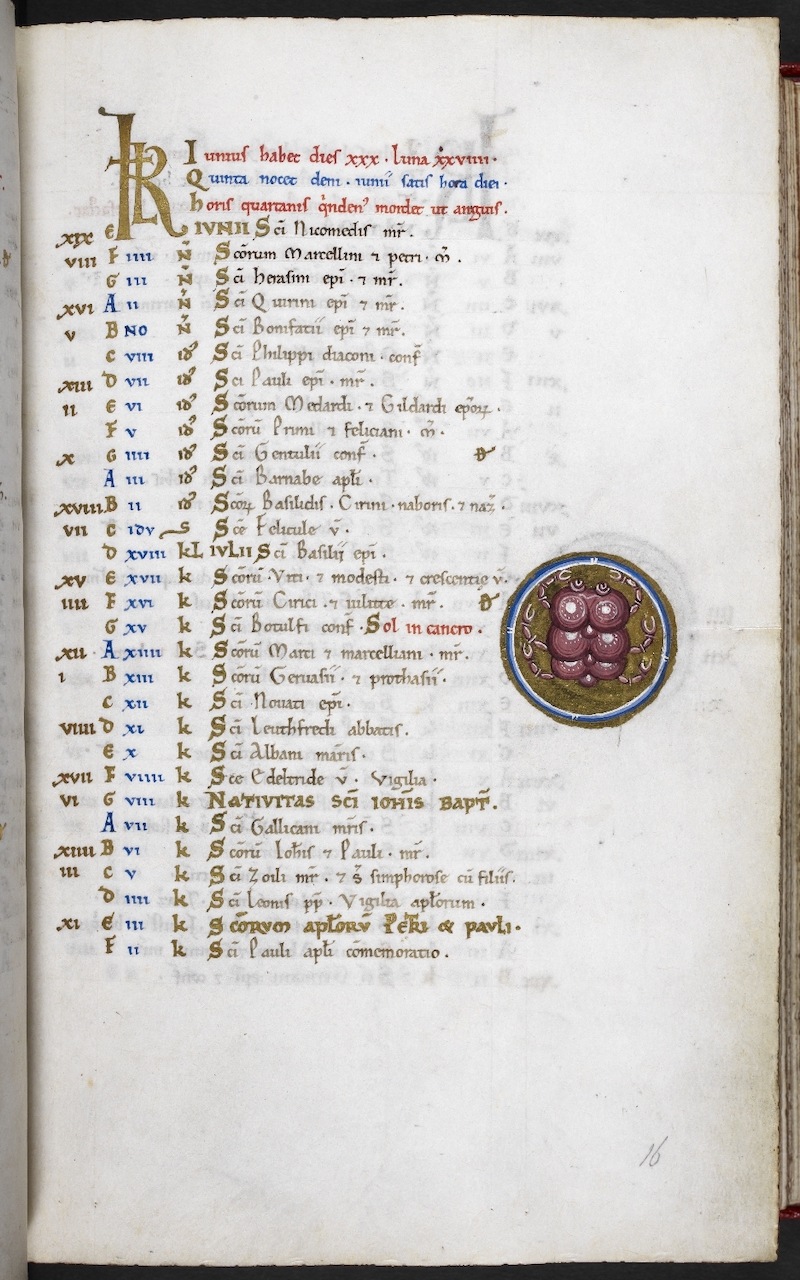 KL Iunius habet dies xxx · luna xxviiii·
Quinta nocet deni · iunii satis hora diei·
horis quartanis q̇nden᾽ mordet ut anguis.
xix E IVNII Sc̄i Nicomedis mr̄.
viii F iiii N̄ Scōrum Marcellini ⁊ petri · m̄.
G iii N̄ Sc̄i herasmi epī · ⁊ mr̄.
xvi A ii N̄ Sc̄i Quirini epī ⁊ mr̄.
v B NO N̄ Sc̄i Bonifatii epī ⁊ mr̄.
C viii id᾽ Sc̄i Philippi diaconi · conf̄
xiii D vii id᾽ Sci Pauli epī · mr̄.
ii E vi id᾽ Scōrum Medardi · ⁊ Gildardi ep̄oꝝ.
F v id᾽ Scōrū Primi ⁊ feliciani · m̄.
x G iiii id᾽ Sc̄i Gentulii conf̄ ·
A iii id᾽ Sc̄i Barnabe apłi ·
xviii B ii id᾽ Scōꝝ Basilidis · Cirini · naboris · ⁊ naz̄ .
vii C idvs Sc̄e Felicule v̄ .
D xviii KL IVLII Sc̄i Basilij epī .
xv E xvii k Scōrū · Viti · ⁊ modesti · ⁊ crescentie v̄·
iiii F xvi k Scōrū Cirici · ⁊ iulitte · mr̄ .
G xv k Sc̄i Botulfi conf̄ · Sol in cancro .
xii A xiiii k Scōrū Marci ⁊ marcelliani · mr̄.
i B xiii k Scōrū Geruasii · ⁊ prothasii ·
C xii k Sc̄i Nouati epī ·
viiii D xi k Sc̄i Leuthfredi abbatis .
E x k Sc̄i Albani mar̄is ·
xvii F viiii k Sce Edeltride v̄ · Vigilia ·
vi G viii k NATIVITAS SC̄I IOHĪS BAPT̄ .
A vii k Sc̄i Gallicani mr̄is ·
xiiii B vi k Scōrū Ioh̄is ⁊ Pauli · mr̄ .
iii C v k Sc̄i Zoili mr̄ . ⁊ s̄ simphorose cū filiis .
D iiii k Sc̄i Leonis pp̄ · Vigilia apłorum ·
xi E iii k Scōrvm apłorv̄ Pet̄ri & pavli ·
F ii k Sc̄i Pauli apłi cōmemoratio .
16